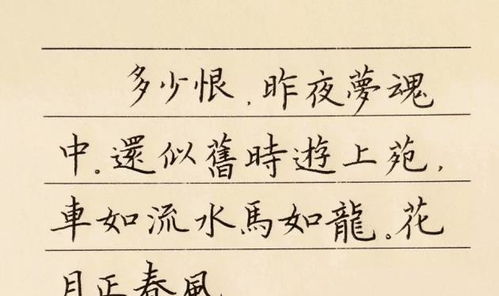 多少恨，昨夜夢魂
中。還似舊時遊上苑，
車如流水馬如龍。花
月正春風